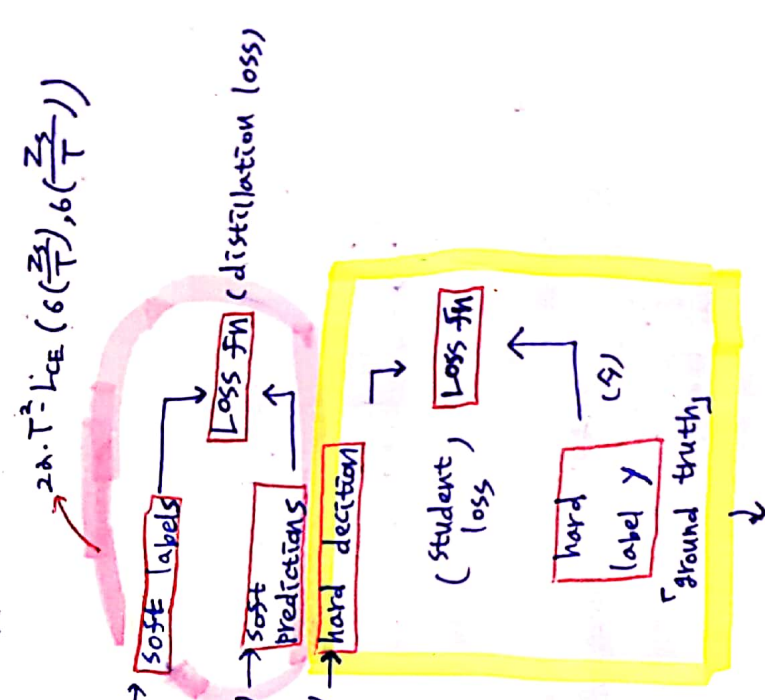 2α·T²·L_CE(σ(Zs/T),σ(Zs/T))
soft labels
Loss fn
(distillation loss)
soft
predictions
hard decition
Loss fn
(student
loss)
hard
label y
(y)
「ground truth」